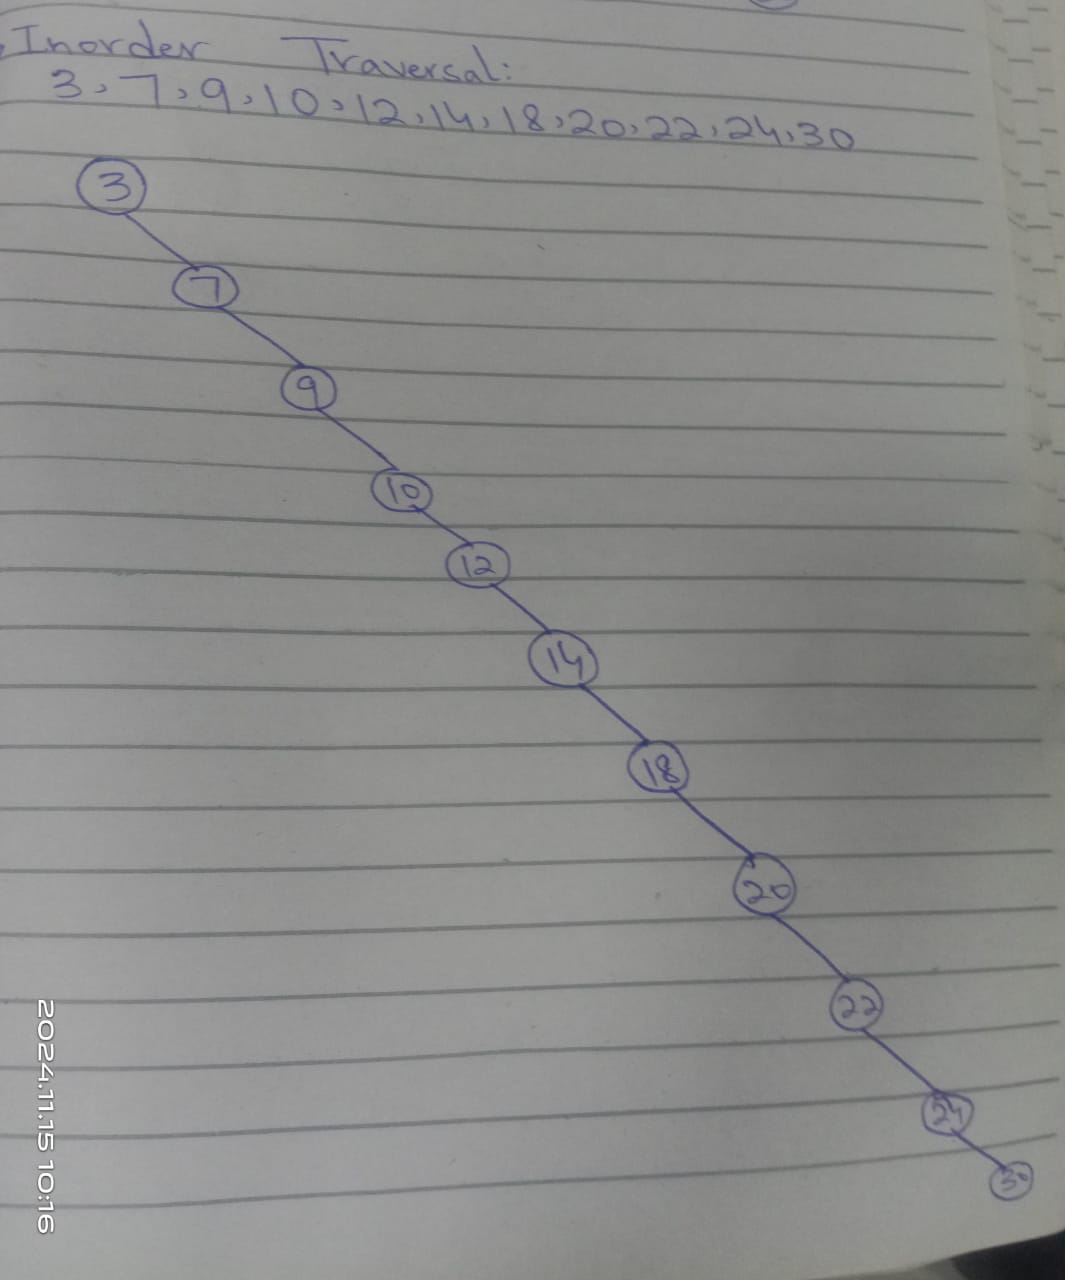 Inorder Traversal:
3, 7, 9, 10, 12, 14, 18, 20, 22, 24, 30
3
7
9
10
12
14
18
20
22
24
30
2024.11.15 10:16